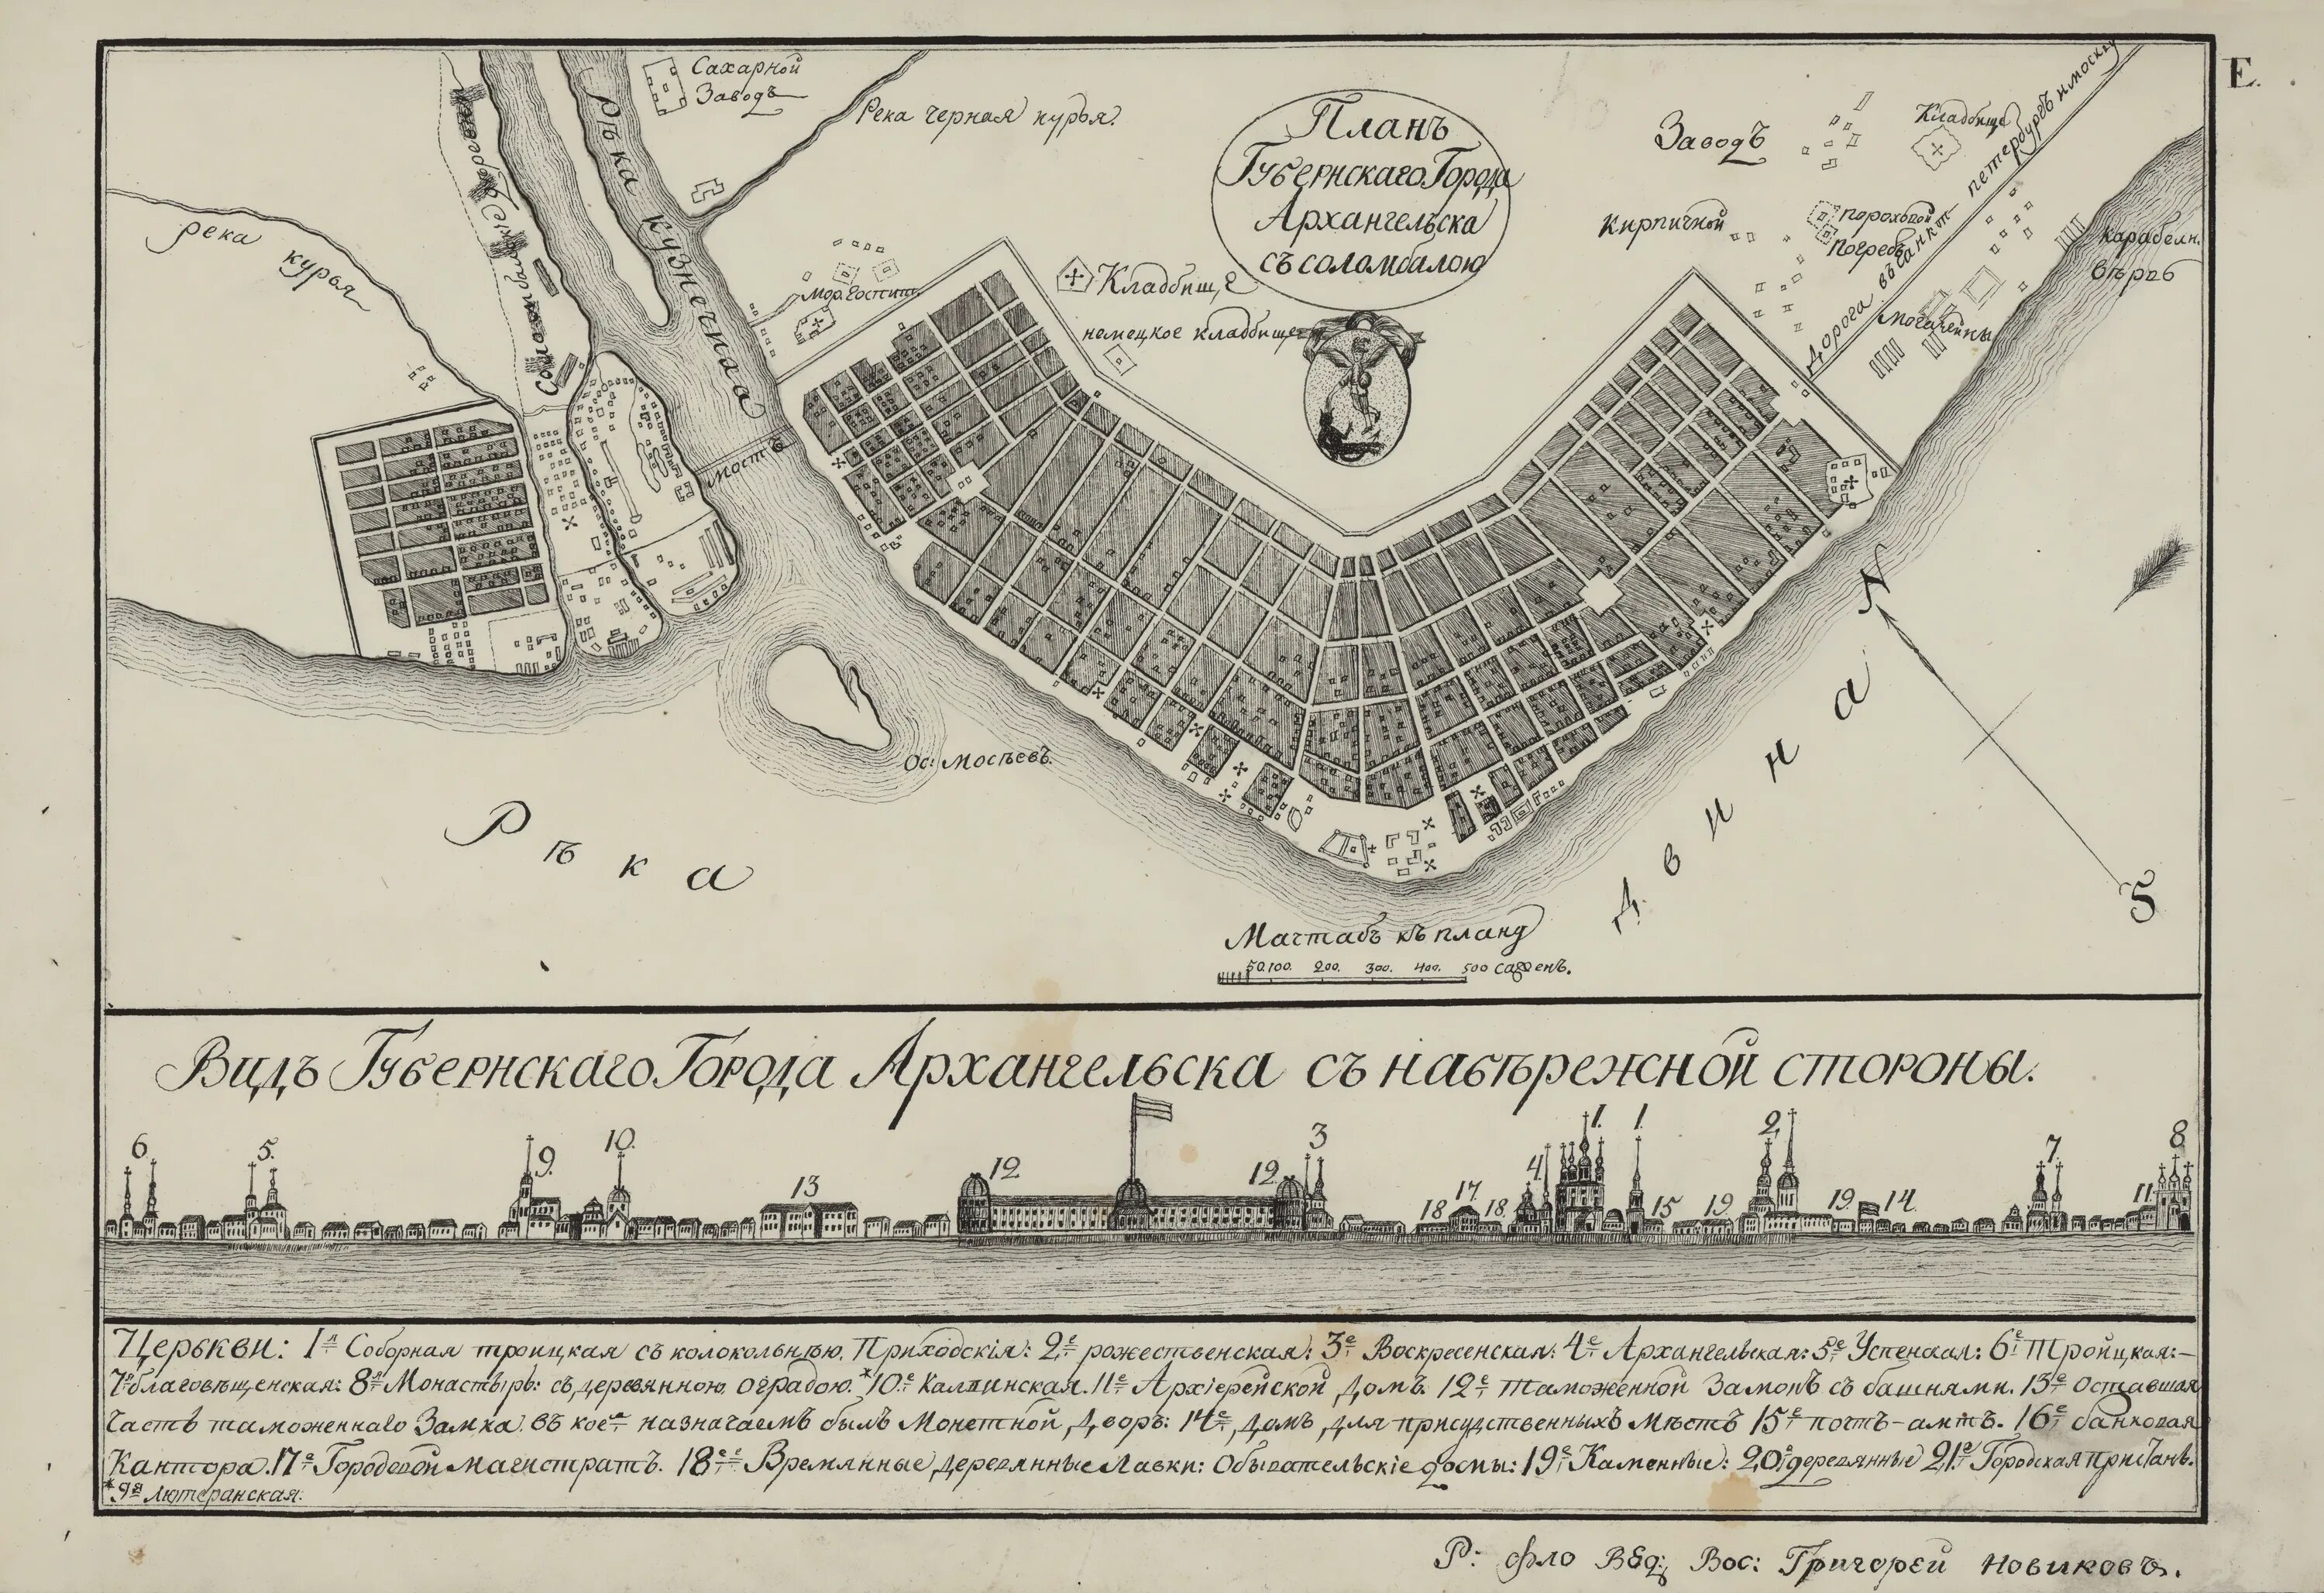 Е.
Сахарной
Заводъ
Река черная курья.
Рѣка кузнечиха
река курья
Мор: Госпит:
Кладбище
немецкое кладбище
Планъ
Губернскаго Города
Архангельска
съ соломбалою
Заводъ
Кирпичной
Кладбище
Пороховой
Погребъ
Дорога въ санкт петербургъ и москву
Карабелн.
вѣрфь
Мостъ
Ос: Мосѣевъ.
Рѣка
Двина
N
S
Маштабъ къ плану
50. 100. 200. 300. 400. 500 саженъ.
Видъ Губернскаго Города Архангельска съ набѣрежной стороны.
6. 5. 9. 10. 13 12 12 3 18 17. 18. 4 1. 1. 15 19. 2 19. 14. 7. 11. 8
Церькви: 1я Соборная троицкая съ колокольнѣю. Приходскія: 2е рожественская: 3е Воскресенская: 4е Архангельская: 5е Успенская: 6е Тройцкая:—
7я благовѣщенская: 8й Монастырь: съ деревянною оградою. *10е Калпинская. 11е Архіерейской Домъ. 12е таможенной Замокъ съ башнями. 13е Оставшая
Часть таможеннаго Замка. въ кое назначаемъ былъ Монетной Дворъ: 14е Домъ для присудственныхъ Мѣстъ 15е почтъ-амтъ. 16е банковая
Кантора. 17е Городовой магистратъ. 18е Времянные деревянные Лавки: Обывательскіе домы: 19е Каменные: 20е деревянные 21е Городская Пристань.
*9я Лютеранская.
Р: фло Вед: Вос: Григорей Новиковъ.